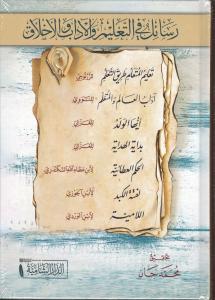 رسائل في التعليم والآداب والأخلاق
تعليم المتعلم طريق التعلم للزرنوجي
آداب العالم والمتعلم للنووي
أيها الولد للغزالي
بداية الهداية للغزالي
الحكم العطائية لابن عطاء الله السكندري
لفتة الكبد لابن الجوزي
اللامية لابن الوردي
تحقيق
الدار الشامية